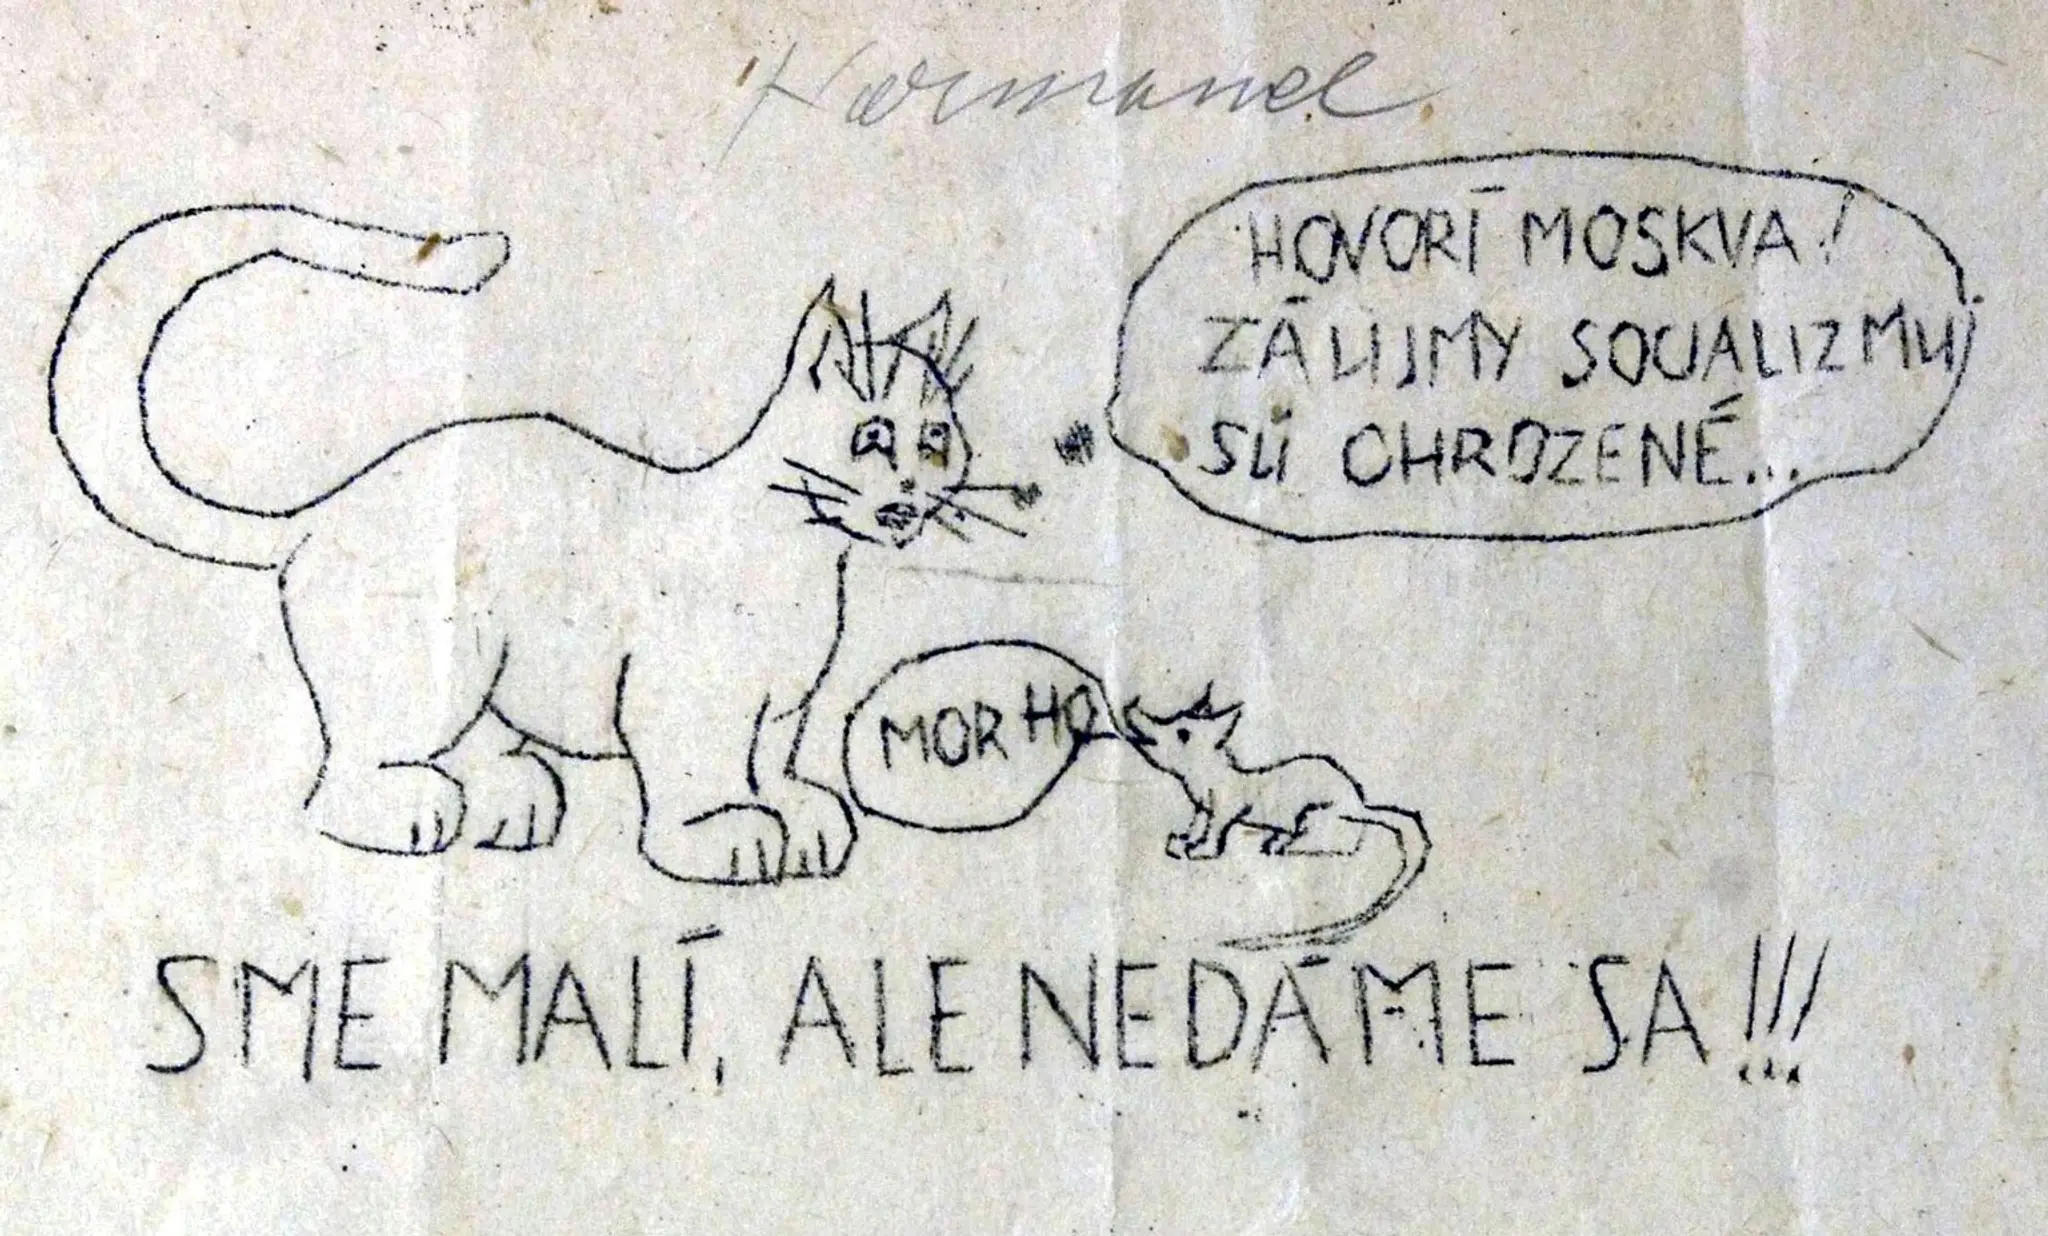 HOVORÍ MOSKVA!
ZÁUJMY SOCIALIZMU
SÚ OHROZENÉ...
MOR HO
SME MALÍ, ALE NEDÁME SA!!!